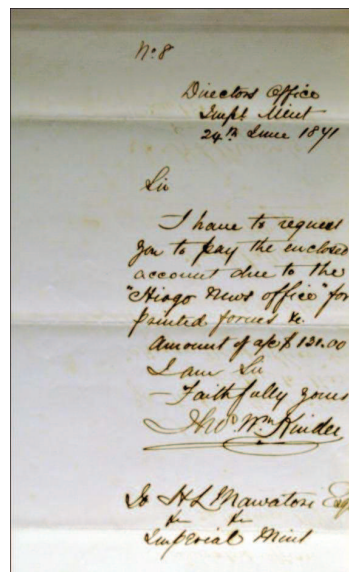 No. 8
Directors Office
Impl. Mint
24th June 1871
Sir
I have to request
you to pay the enclosed
account due to the
"Hiogo News office" for
printed forms &c.
Amount of a/c $131.00
I am Sir
Faithfully yours
Thos Wm Kinder
To H L Mawatose Esq
Imperial Mint